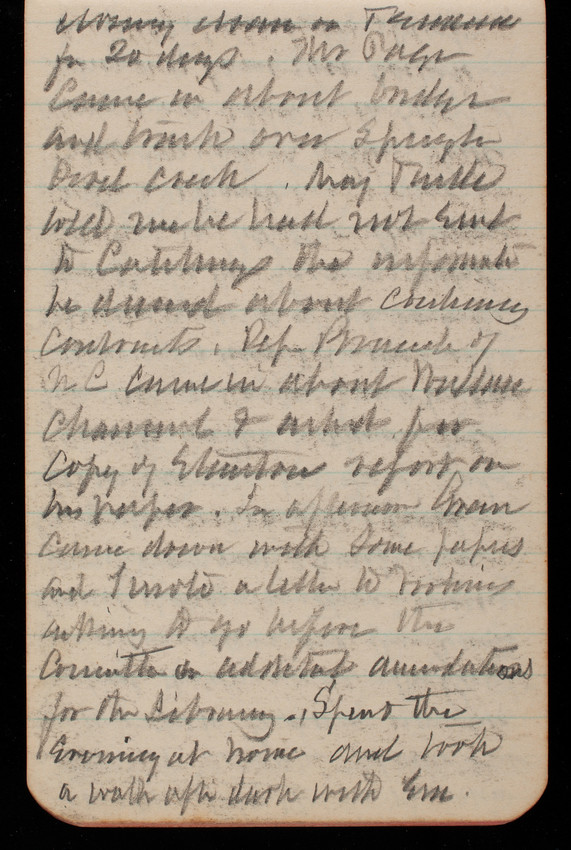 closing down on
for 20 days. Mr Page
came in about bridge
and track over
Creek. Maj Tuttle
told me he had not sent
to Catchings the information
he desired about continuing
contracts. Rep. Branch of
N C came in about Wallace
Channel & asked for
copy of report on
his paper. In afternoon Green
came down with some papers
and I wrote a letter to
asking to go before the
Committee on additional amendations
for the Library. Spent the
Evening at home and took
a walk after dark with Em.